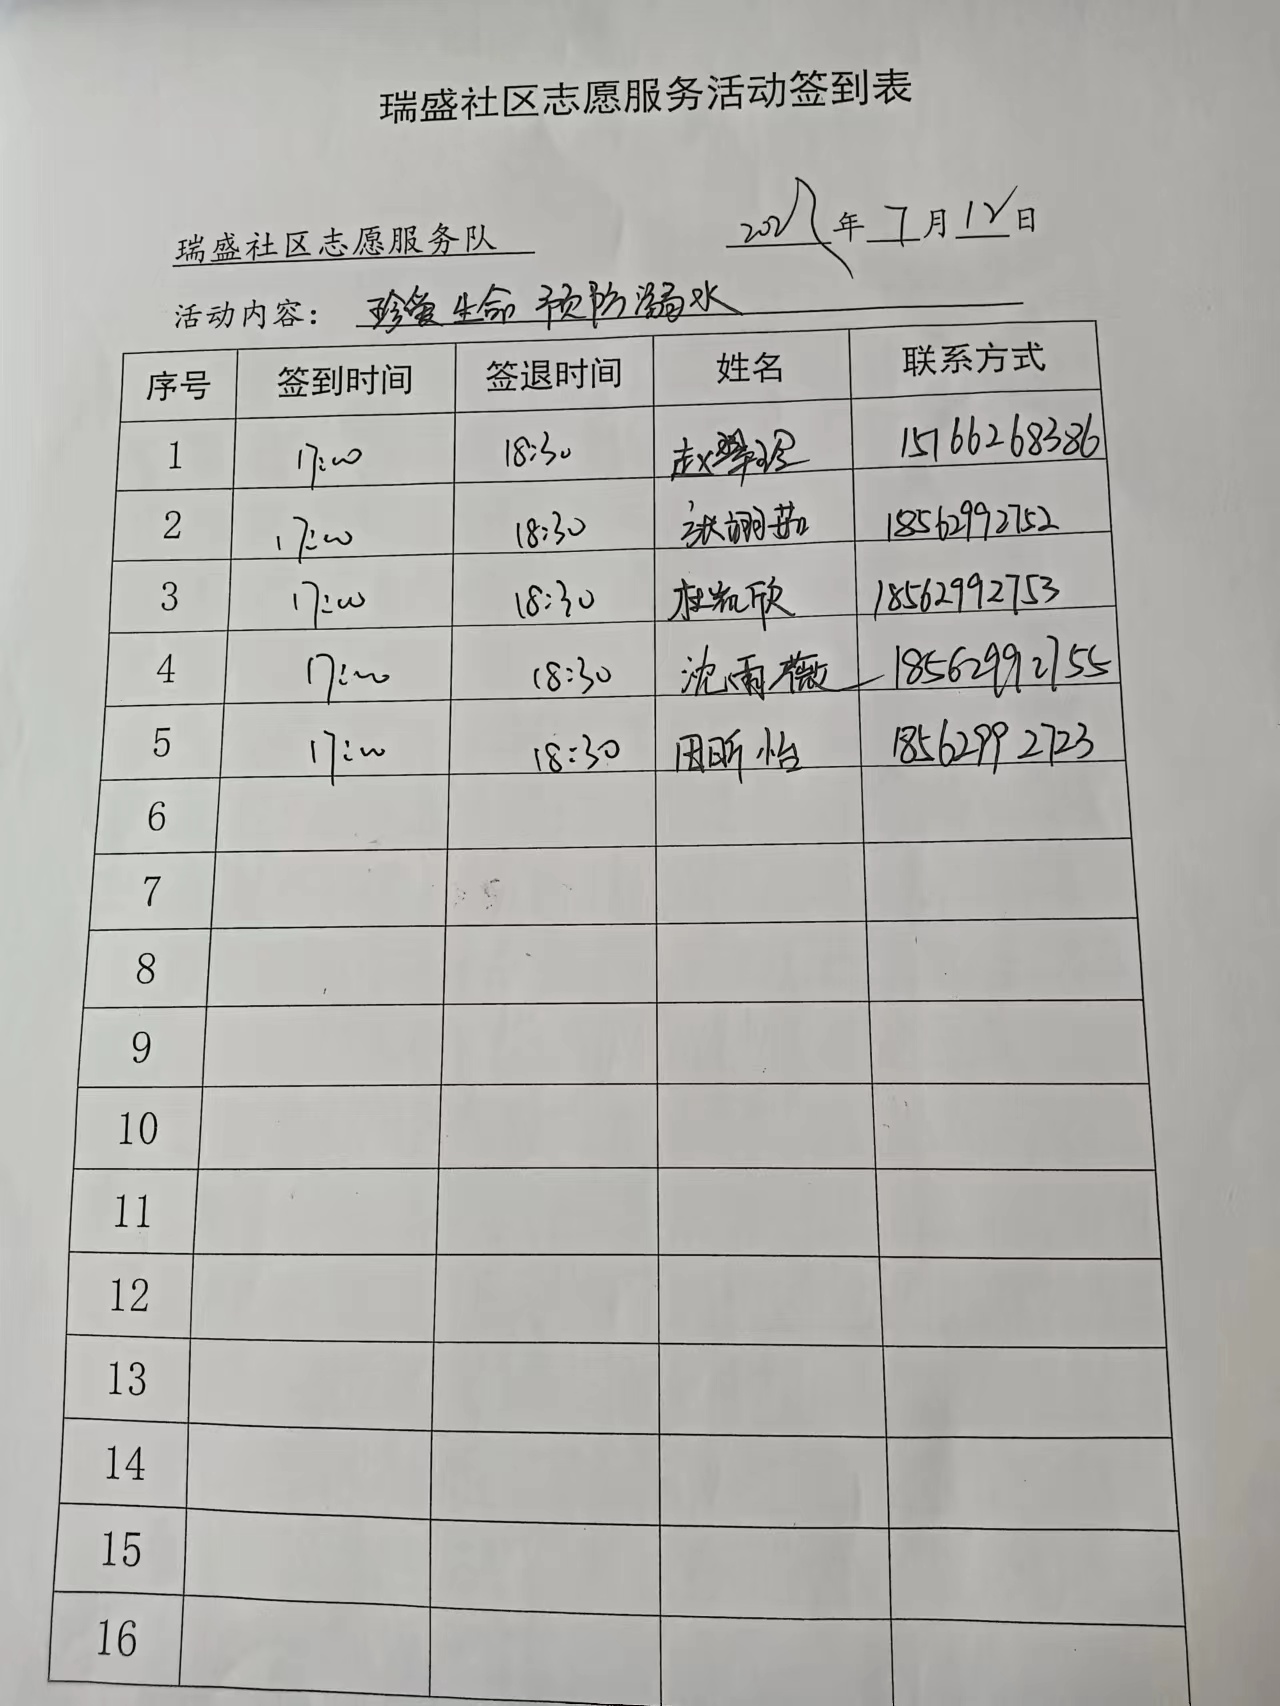 瑞盛社区志愿服务活动签到表
瑞盛社区志愿服务队 202 年 7 月 12 日
活动内容： 珍爱生命 预防溺水
序号 签到时间 签退时间 姓名 联系方式
1 17:00 18:30 赵 15166268386
2 17:00 18:30 张翊茹 18562992752
3 17:00 18:30 杜凯欣 18562992753
4 17:00 18:30 沈雨薇 18562992755
5 17:00 18:30 田昕怡 18562992723
6
7
8
9
10
11
12
13
14
15
16